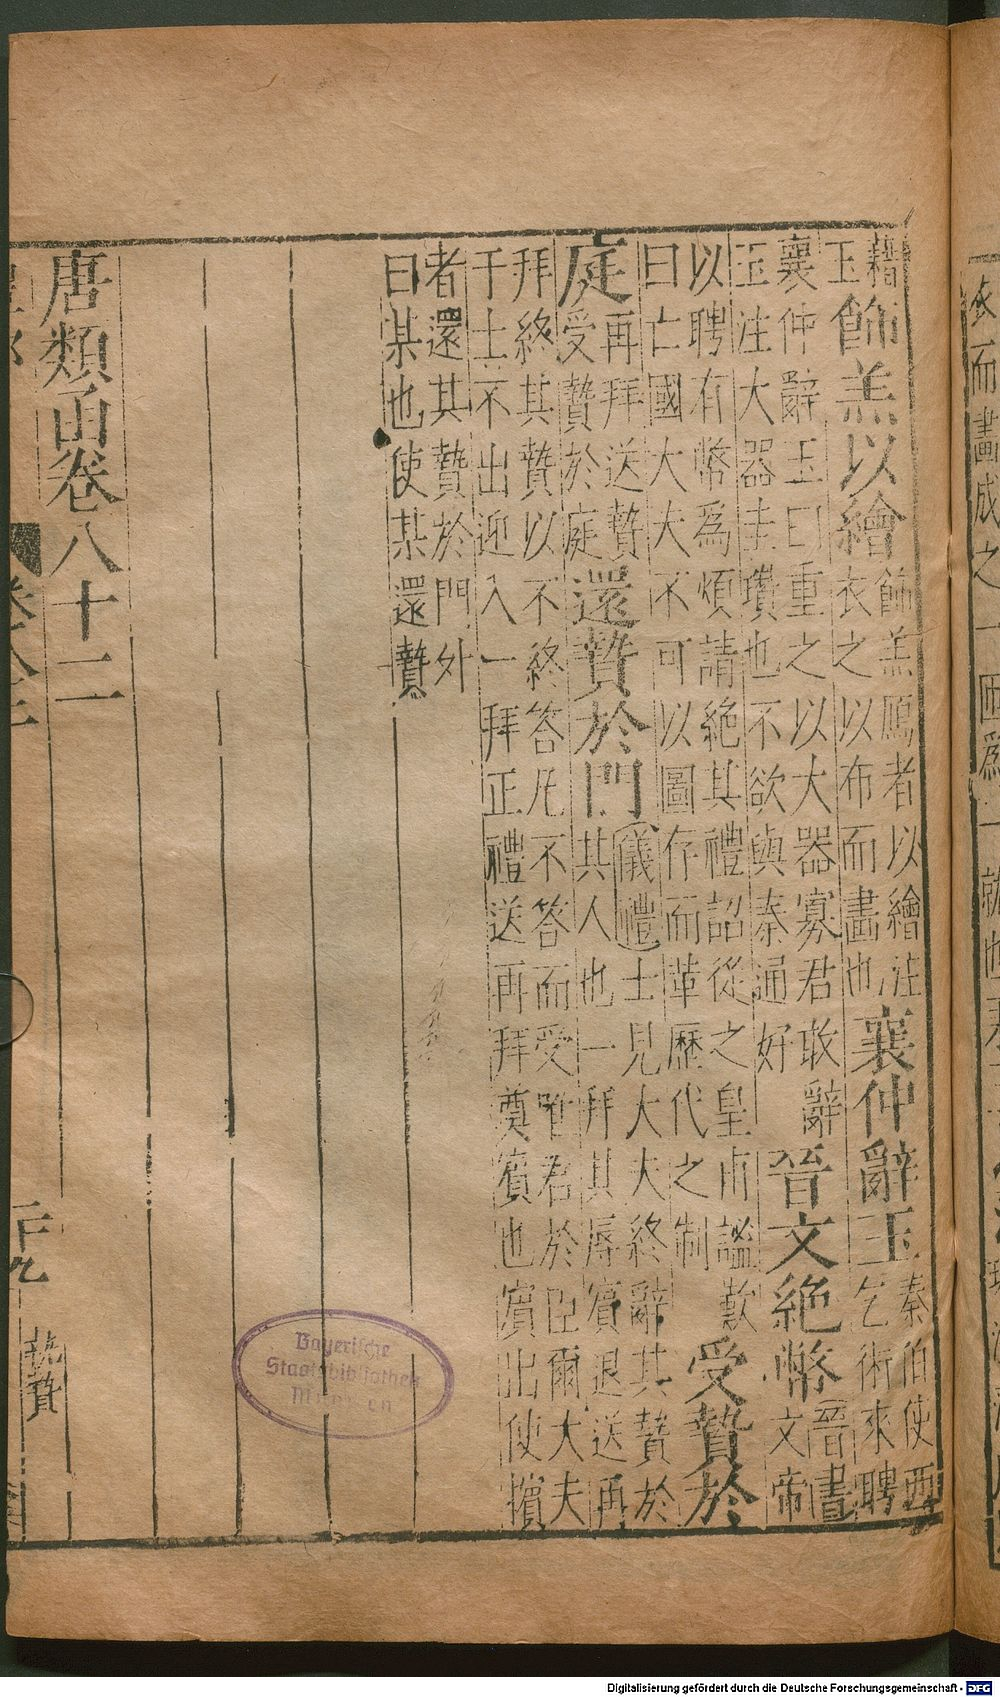 藉玉飾羔以繪飾羔鴈者以繪注衣之以布而畫也襄仲辭玉秦伯使西乞術來聘
襄仲辭玉曰重之以大器寡君敢辭玉注大器圭瓚也不欲與秦通好晉文絶幣晉書文帝
以聘有幣爲煩請絶其禮詔從之皇甫謐歎曰亡國大夫不可以圖存而革歷代之制受贄於
庭再拜送贄受贄於庭還贄於門儀禮士見大夫終辭其贄於其人也一拜其辱賔退送再
拜終其贄以不終答凡不答而受唯君於臣爾大夫于士不出迎入一拜正禮送再拜奠賔也賔出使擯
者還其贄於門外曰某也使某還贄
唐類函卷八十二
二十九
執贄
Bayerische
Staatsbibliothek
München
Digitalisierung gefördert durch die Deutsche Forschungsgemeinschaft - DFG